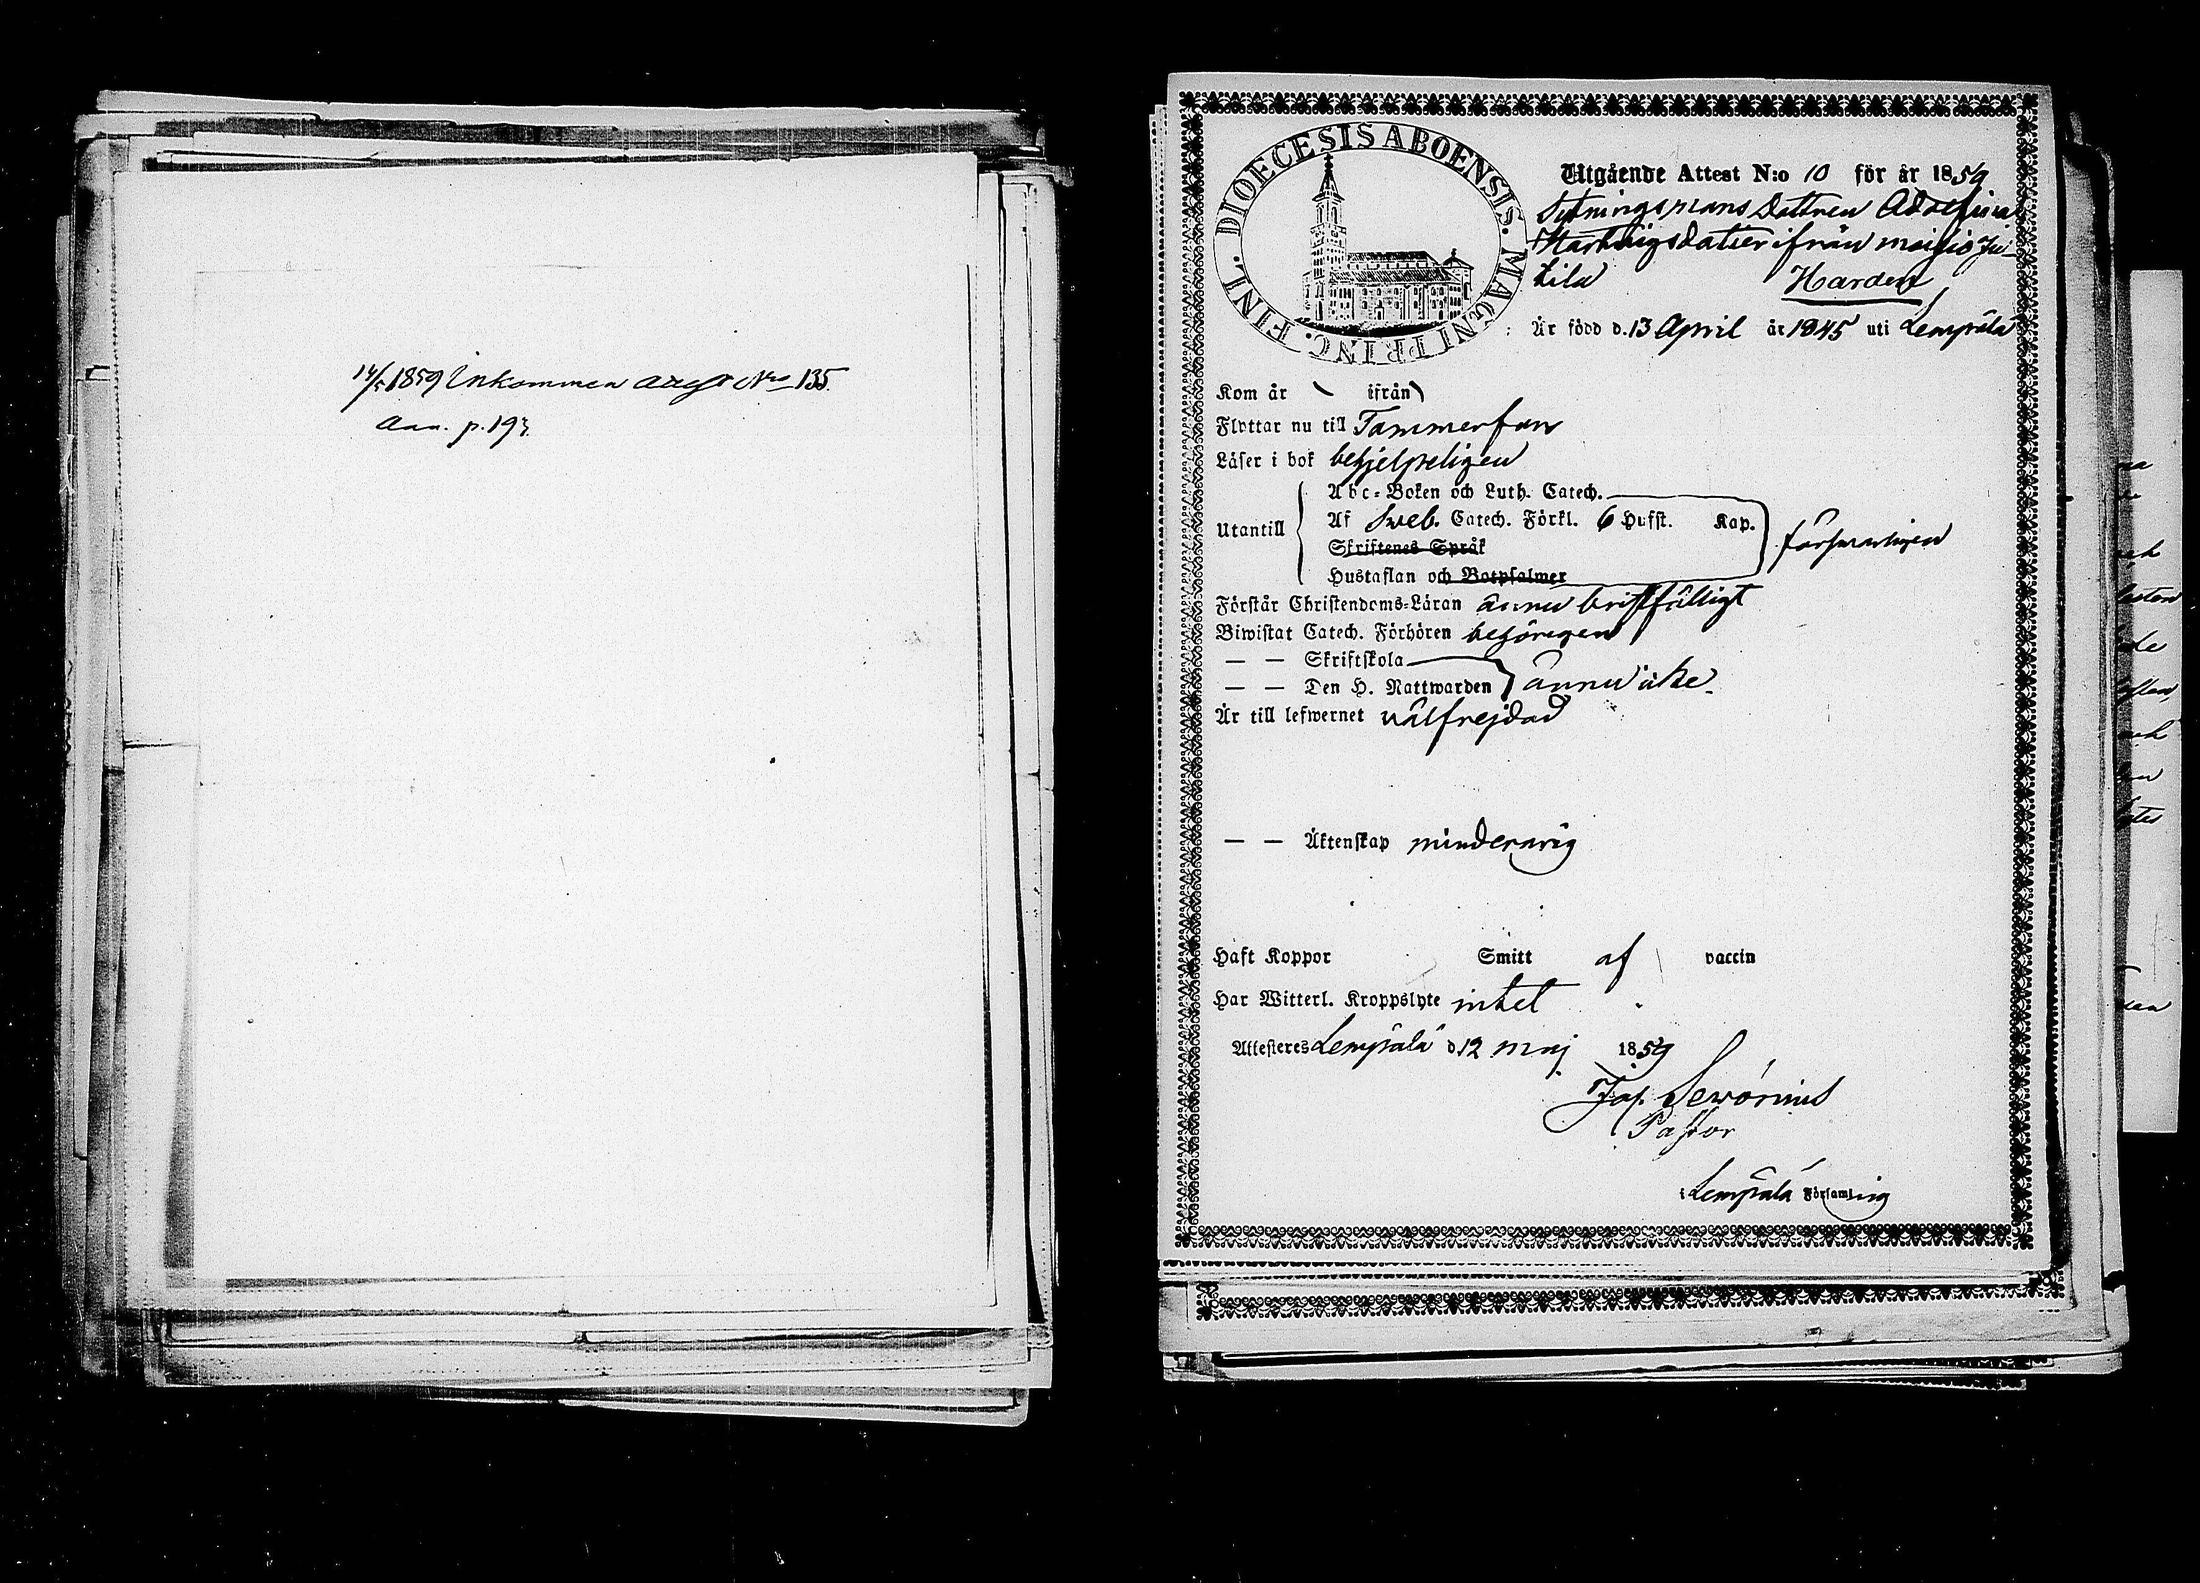 14/5 1859 Inkommen attest No 135.
Ann. p. 193.
DIOECESIS ABOENSIS. MAGNI PRINC. FINL.
Utgående Attest N:o 10 för år 1859
Sytningsmans Dottren Adolfina
Hartvigsdotter ifrån
kila Harden
Är född d. 13 April år 1845 uti Lempälä
Kom år ifrån
Flyttar nu till Tammerfors
Läser i bok behjelpeligen
Abc-Boken och Luth. Catech.
Utantill Af Sveb. Catech. Förkl. 6 Hufst. Kap. försvarligen
Skriftenes Språk
Hustaflan och Botpsalmer
Förstår Christendoms-Läran ännu bristfälligt
Biwistat Catech. Förhören behörigen
— — Skriftskola
— — Den H. Nattwarden ännu icke
Är till lefwernet välfrejdad
— — Äktenskap minderårig
Haft Koppor Smitt af vaccin
Har Witterl. Kroppslyte intet
Attesteres Lempälä d. 12 maj 1859
Pastor
i Lempälä Församling